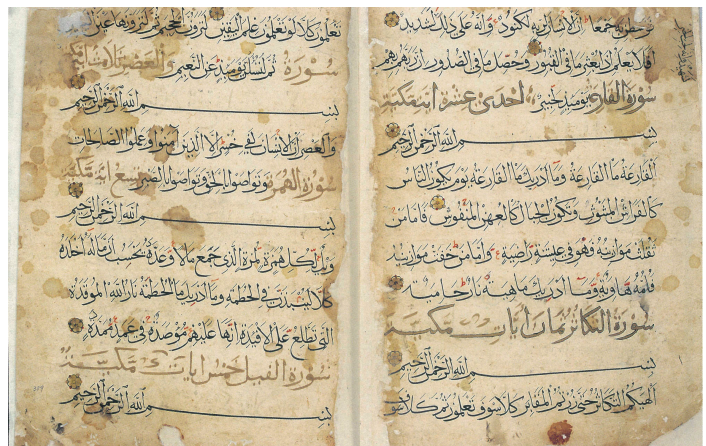 جمعا ان الانسان لربه لكنود وانه على ذلك لشديد
افلا يعلم اذا بعثر ما في القبور وحصل ما في الصدور ان ربهم بهم
سورة القارعة يومئذ لخبير احدى عشرة اية مكية
بسم الله الرحمن الرحيم
القارعة ما القارعة وما ادريك ما القارعة يوم يكون الناس
كالفراش المبثوث وتكون الجبال كالعهن المنفوش فاما من
ثقلت موازينه فهو في عيشة راضية واما من خفت موازينه
فامه هاوية وما ادريك ما هيه نار حامية
سورة التكاثر ثمان ايات مكية
بسم الله الرحمن الرحيم
الهيكم التكاثر حتى زرتم المقابر كلا سوف تعلمون ثم كلا سوف
تعلمون كلا لو تعلمون علم اليقين لترون الجحيم ثم لترونها عين اليقين
سورة ثم لتسئلن يومئذ عن النعيم والعصر ثلاث ايات
بسم الله الرحمن الرحيم
والعصر ان الانسان لفي خسر الا الذين آمنوا وعملوا الصالحات
سورة الهمزة وتواصوا بالحق وتواصوا بالصبر تسع اية مكية
بسم الله الرحمن الرحيم
ويل لكل همزة لمزة الذي جمع مالا وعدده يحسب ان ماله اخلده
كلا لينبذن في الحطمة وما ادريك ما الحطمة نار الله الموقدة
التي تطلع على الافئدة انها عليهم موصدة في عمد ممددة
سورة الفيل خمس ايات مكية
بسم الله الرحمن الرحيم